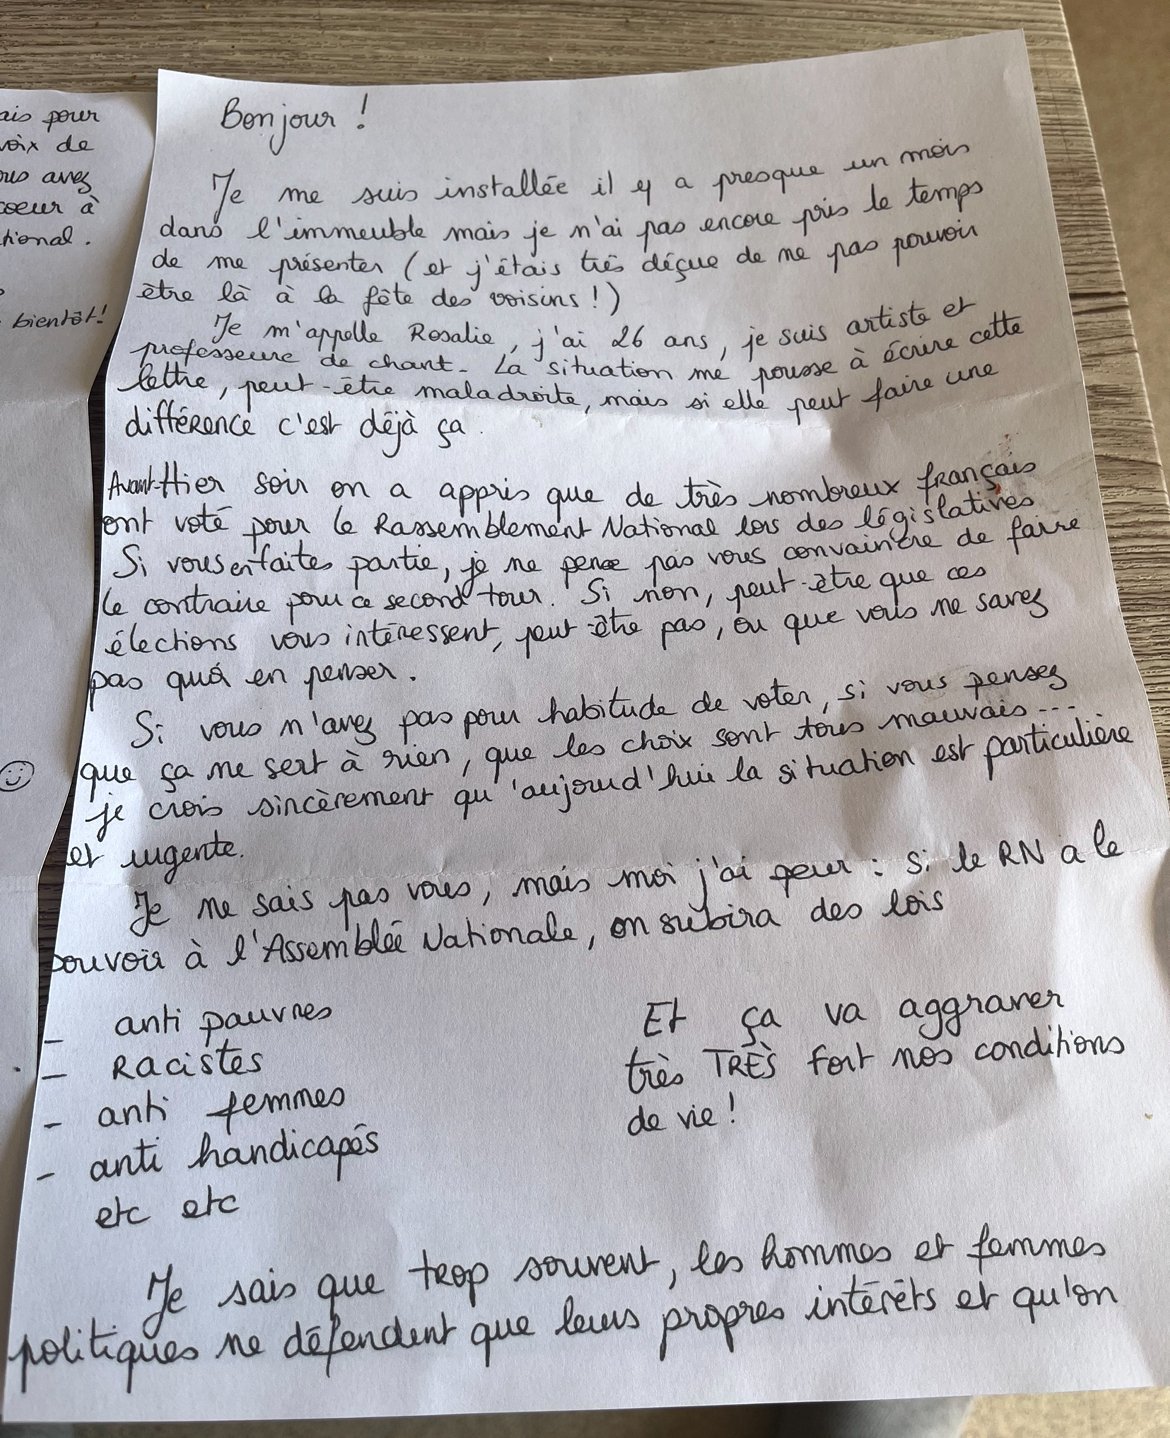 ais pour
voix de
ous avez
coeur à
tional.
bientôt!
Bonjour !
Je me suis installée il y a presque un mois
dans l'immeuble mais je n'ai pas encore pris le temps
de me présenter (et j'étais très déçue de ne pas pouvoir
être là à la fête des voisins !)
Je m'appelle Rosalie, j'ai 26 ans, je suis artiste et
professeure de chant. La situation me pousse à écrire cette
lettre, peut-être maladroite, mais si elle peut faire une
différence c'est déjà ça.
Avant-Hier soir on a appris que de très nombreux français
ont voté pour le Rassemblement National lors des législatives
Si vous en faites partie, je ne pense pas vous convaincre de faire
le contraire pour ce second tour. Si non, peut-être que ces
élections vous intéressent, peut-être pas, ou que vous ne savez
pas quoi en penser.
Si vous n'avez pas pour habitude de voter, si vous pensez
que ça ne sert à rien, que les choix sont tous mauvais ...
je crois sincèrement qu'aujourd'hui la situation est particulière
et urgente.
Je ne sais pas vous, mais moi j'ai peur : si le RN a le
pouvoir à l'Assemblée Nationale, on subira des lois
- anti pauvres
- Racistes
- anti femmes
- anti handicapés
etc etc
Et ça va aggraver
très TRÈS fort nos conditions
de vie !
Je sais que trop souvent, les hommes et femmes
politiques ne défendent que leurs propres intérêts et qu'on